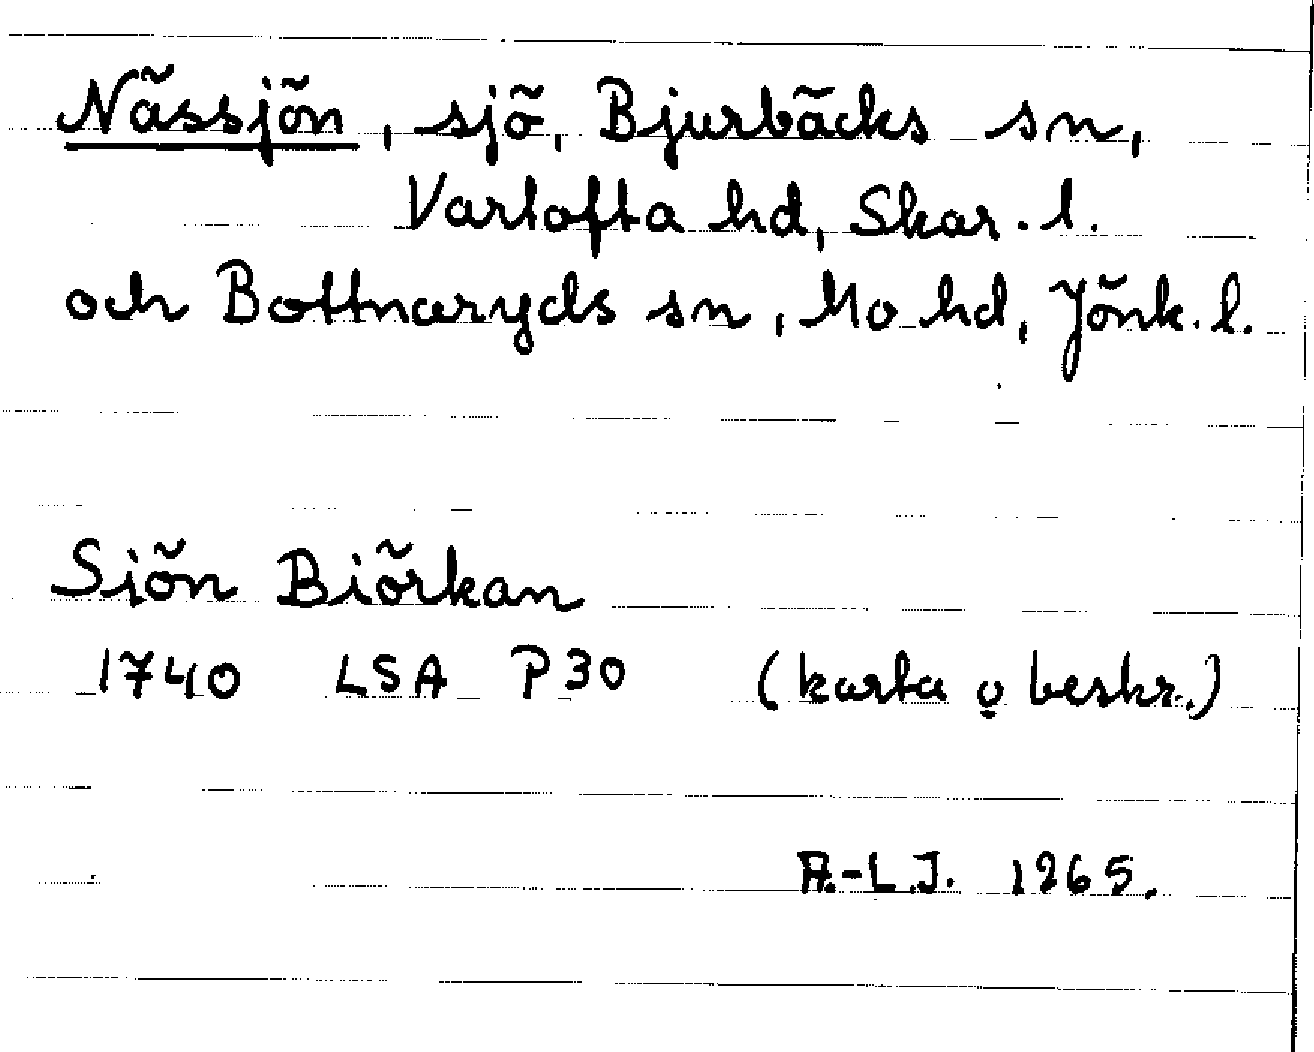 Nässjön, sjö, Bjurbäcks sn,
Vartofta hd, Skar. l.
och Bottnaryds sn, Mo hd, Jönk. l.
Siön Biörkan
1740 LSA P30 (karta o beskr.)
A.-L.J. 1965.